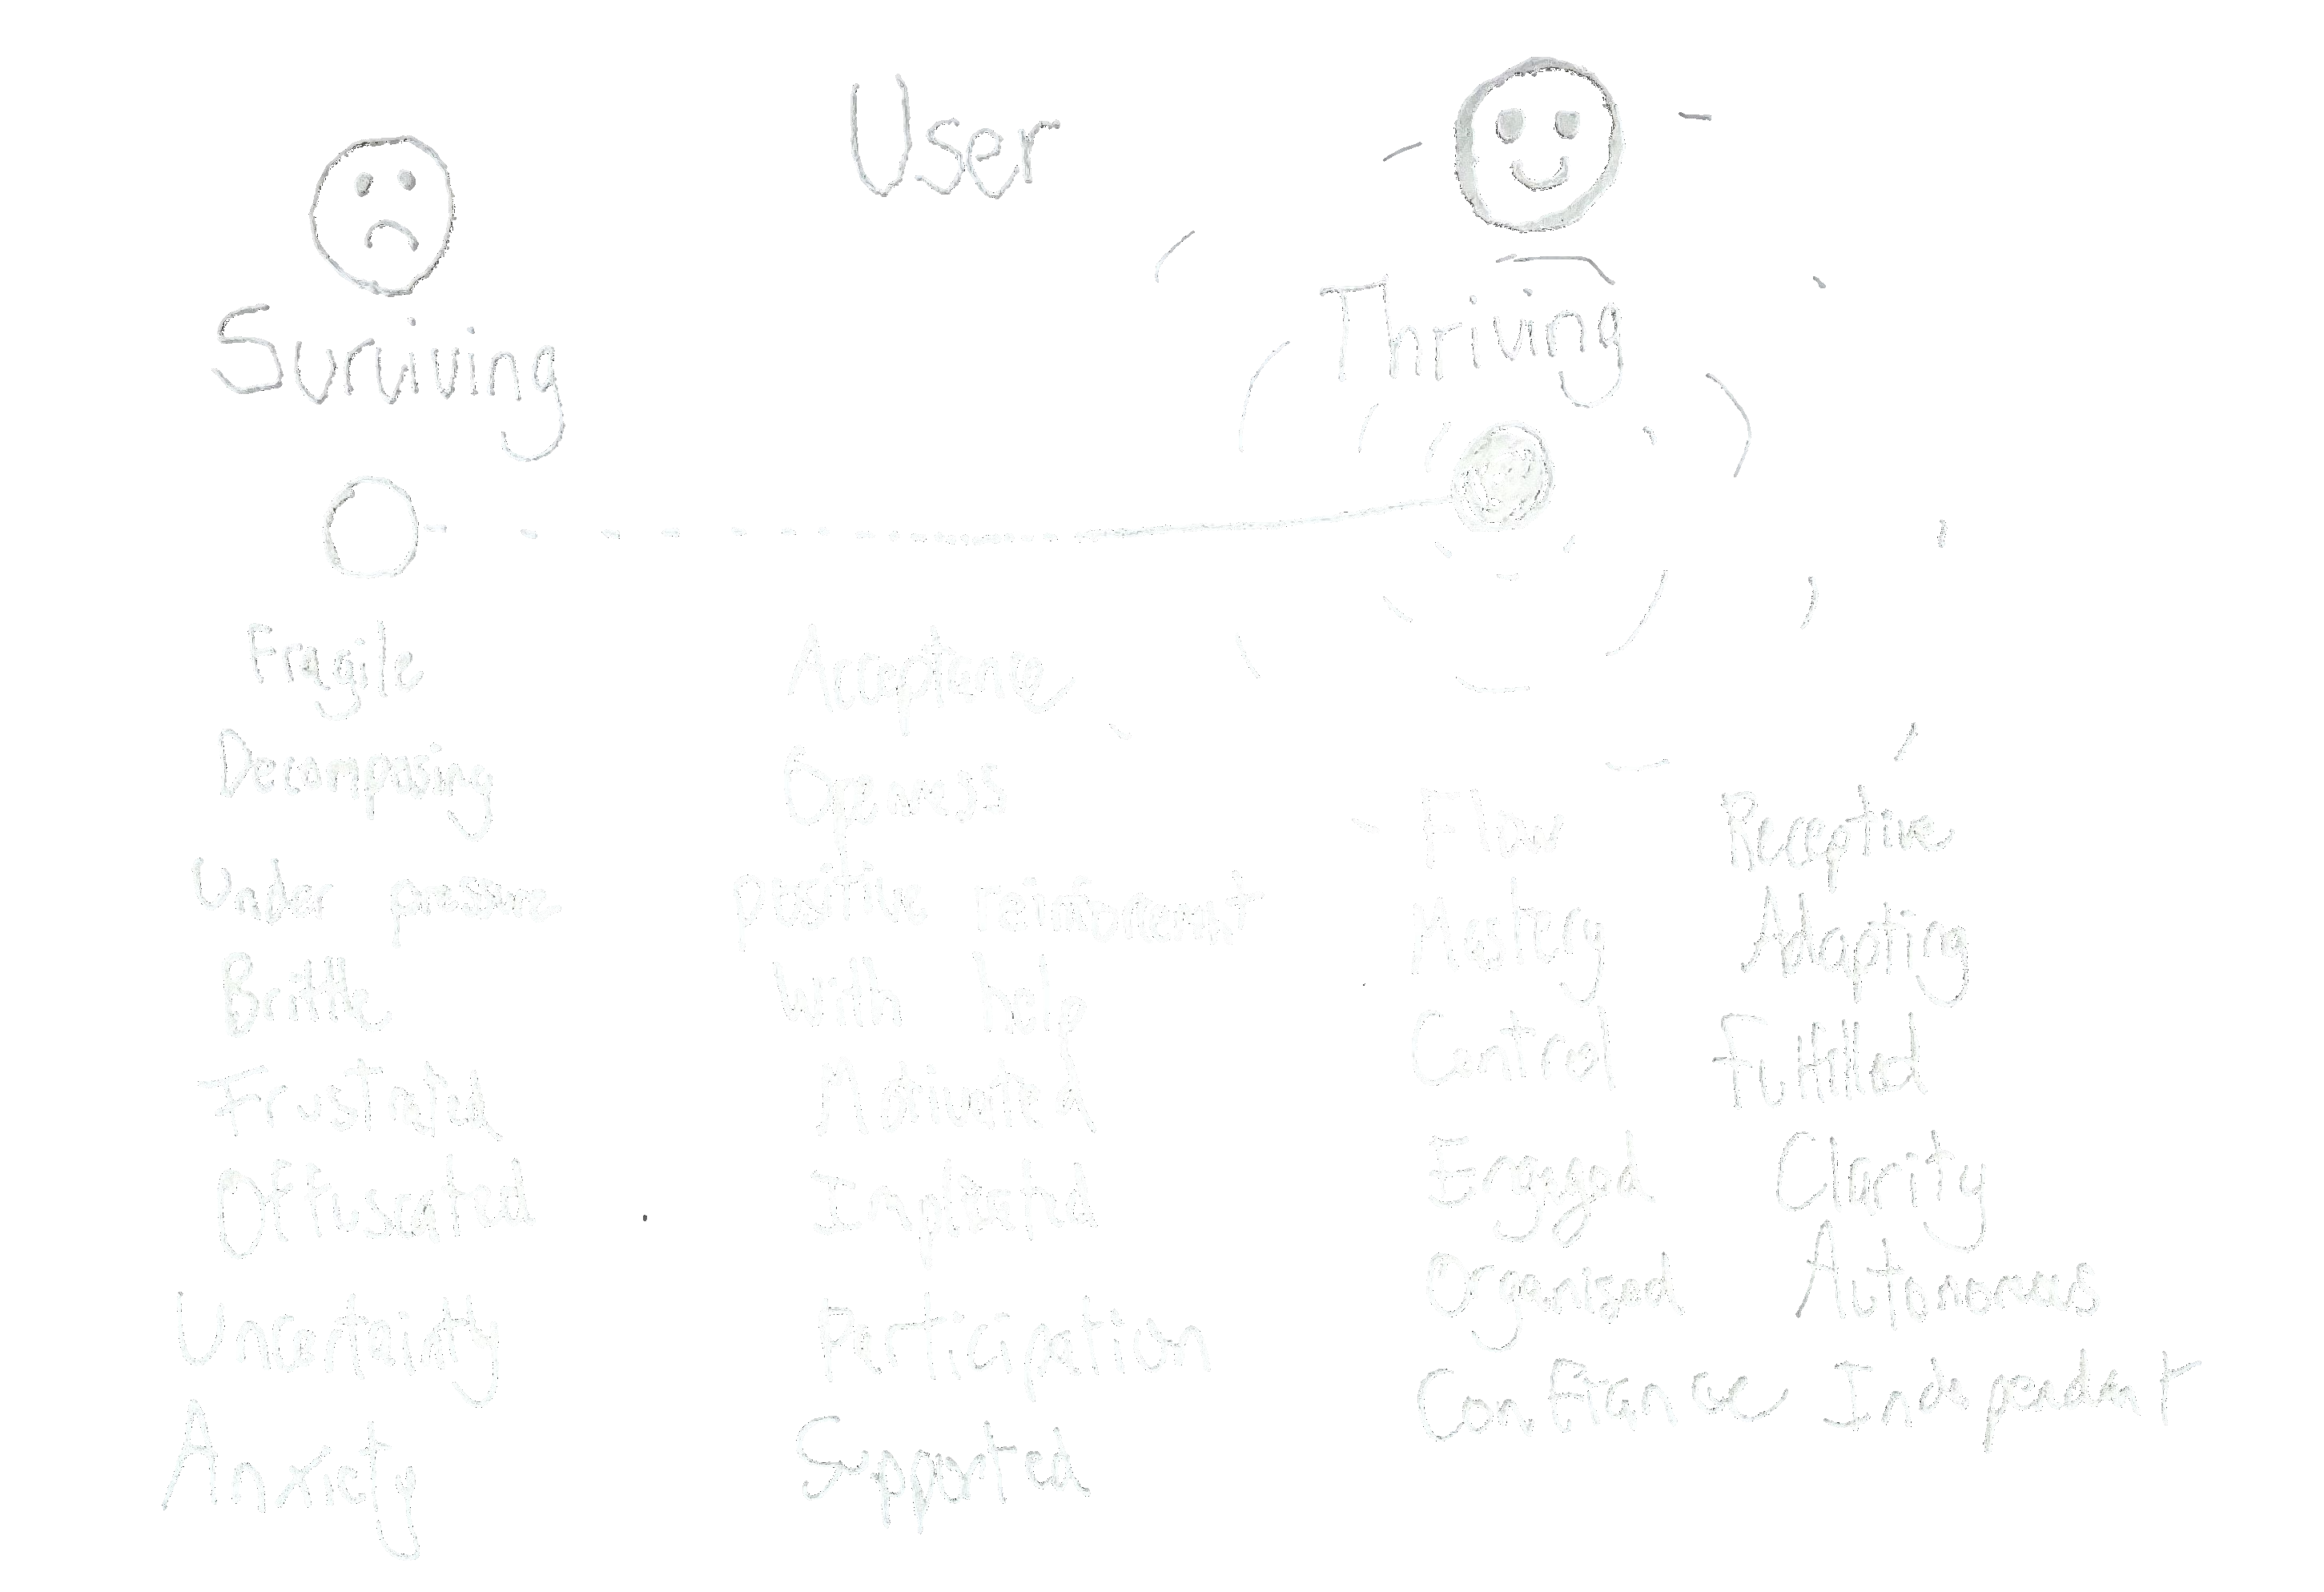 User
Surviving
Thriving
Fragile
Decomposing
Under pressure
Brittle
Frustrated
Offuscated
Uncertainty
Anxiety
Acceptance
Openess
positive reinforcement
With help
Motivated
Implicated
Participation
Supported
Flow
Mastery
Control
Engaged
Organized
Confiance
Receptive
Adapting
Fulfilled
Clarity
Autonomous
Independent